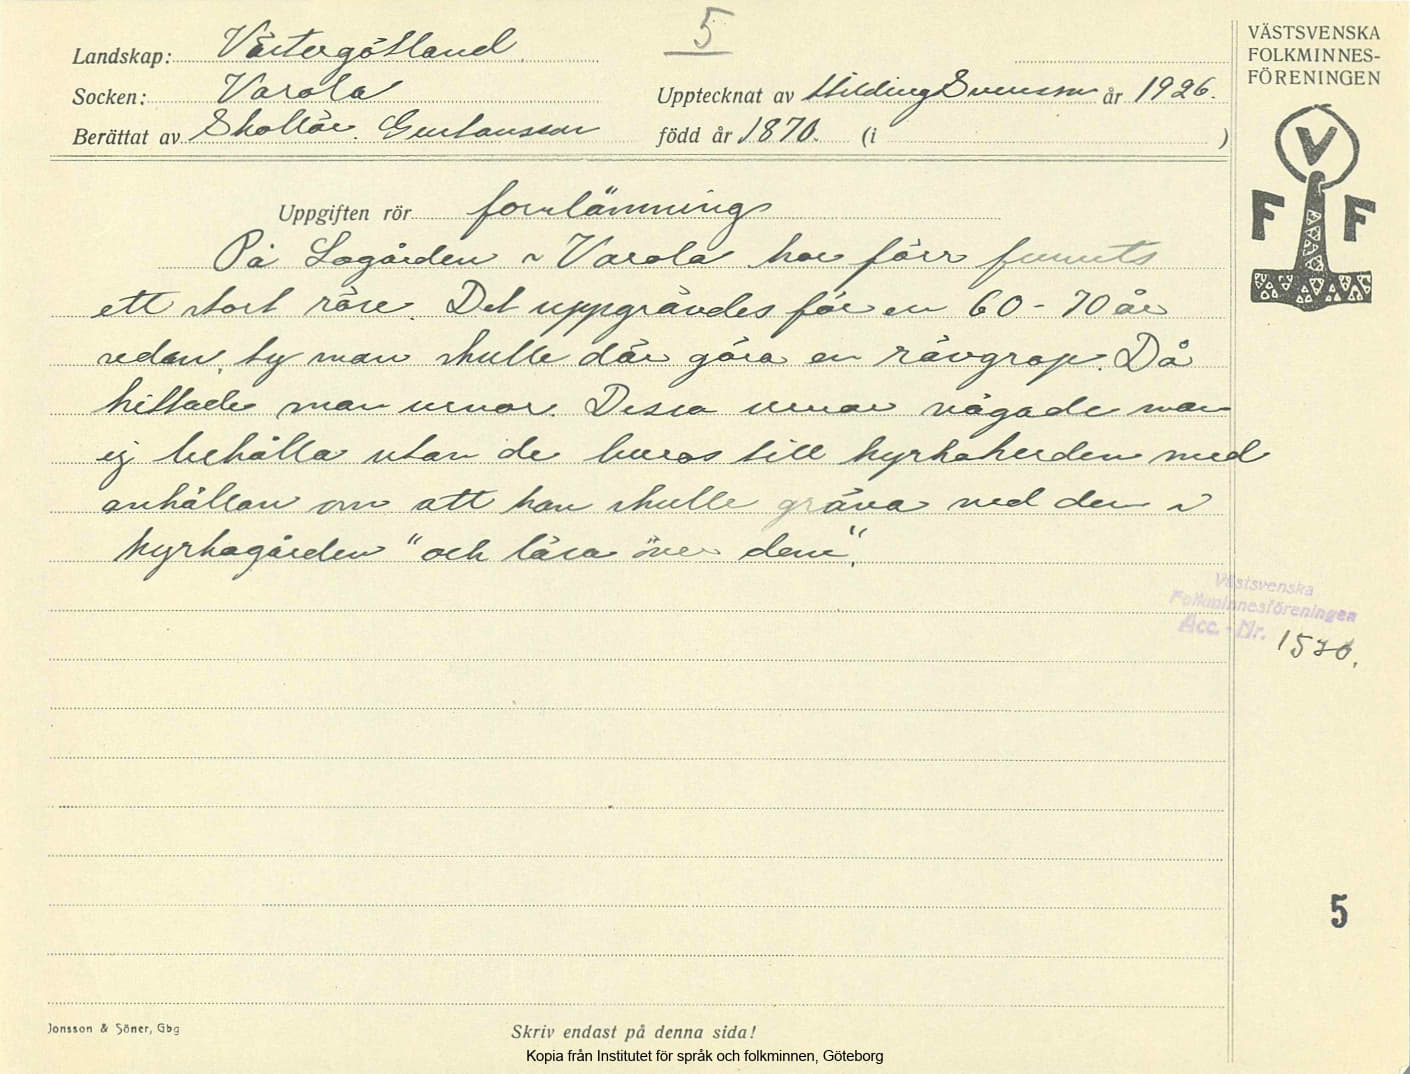 5
VÄSTSVENSKA
FOLKMINNES-
FÖRENINGEN
Landskap: Västergötland
Socken: Varola
Upptecknat av Hilding Svensson år 1926.
Berättat av Skollär. Gustavsson
född år 1870. (i )
V
F F
Uppgiften rör fornlämning
På Logården i Varola har förr funnits
ett stort röse. Det uppgrävdes för en 60-70 år
sedan, ty man skulle där göra en rävgrop. Då
hittade man urnor. Dessa urnor vågade man
ej behålla utan de buros till kyrkoherden med
anhållan om att han skulle gräva ned dem i
kyrkogården "och läsa över dem".
Västsvenska
Folkminnesföreningen
Acc. - Nr.
5
Jonsson & Söner, Gbg
Skriv endast på denna sida!
Kopia från Institutet för språk och folkminnen, Göteborg